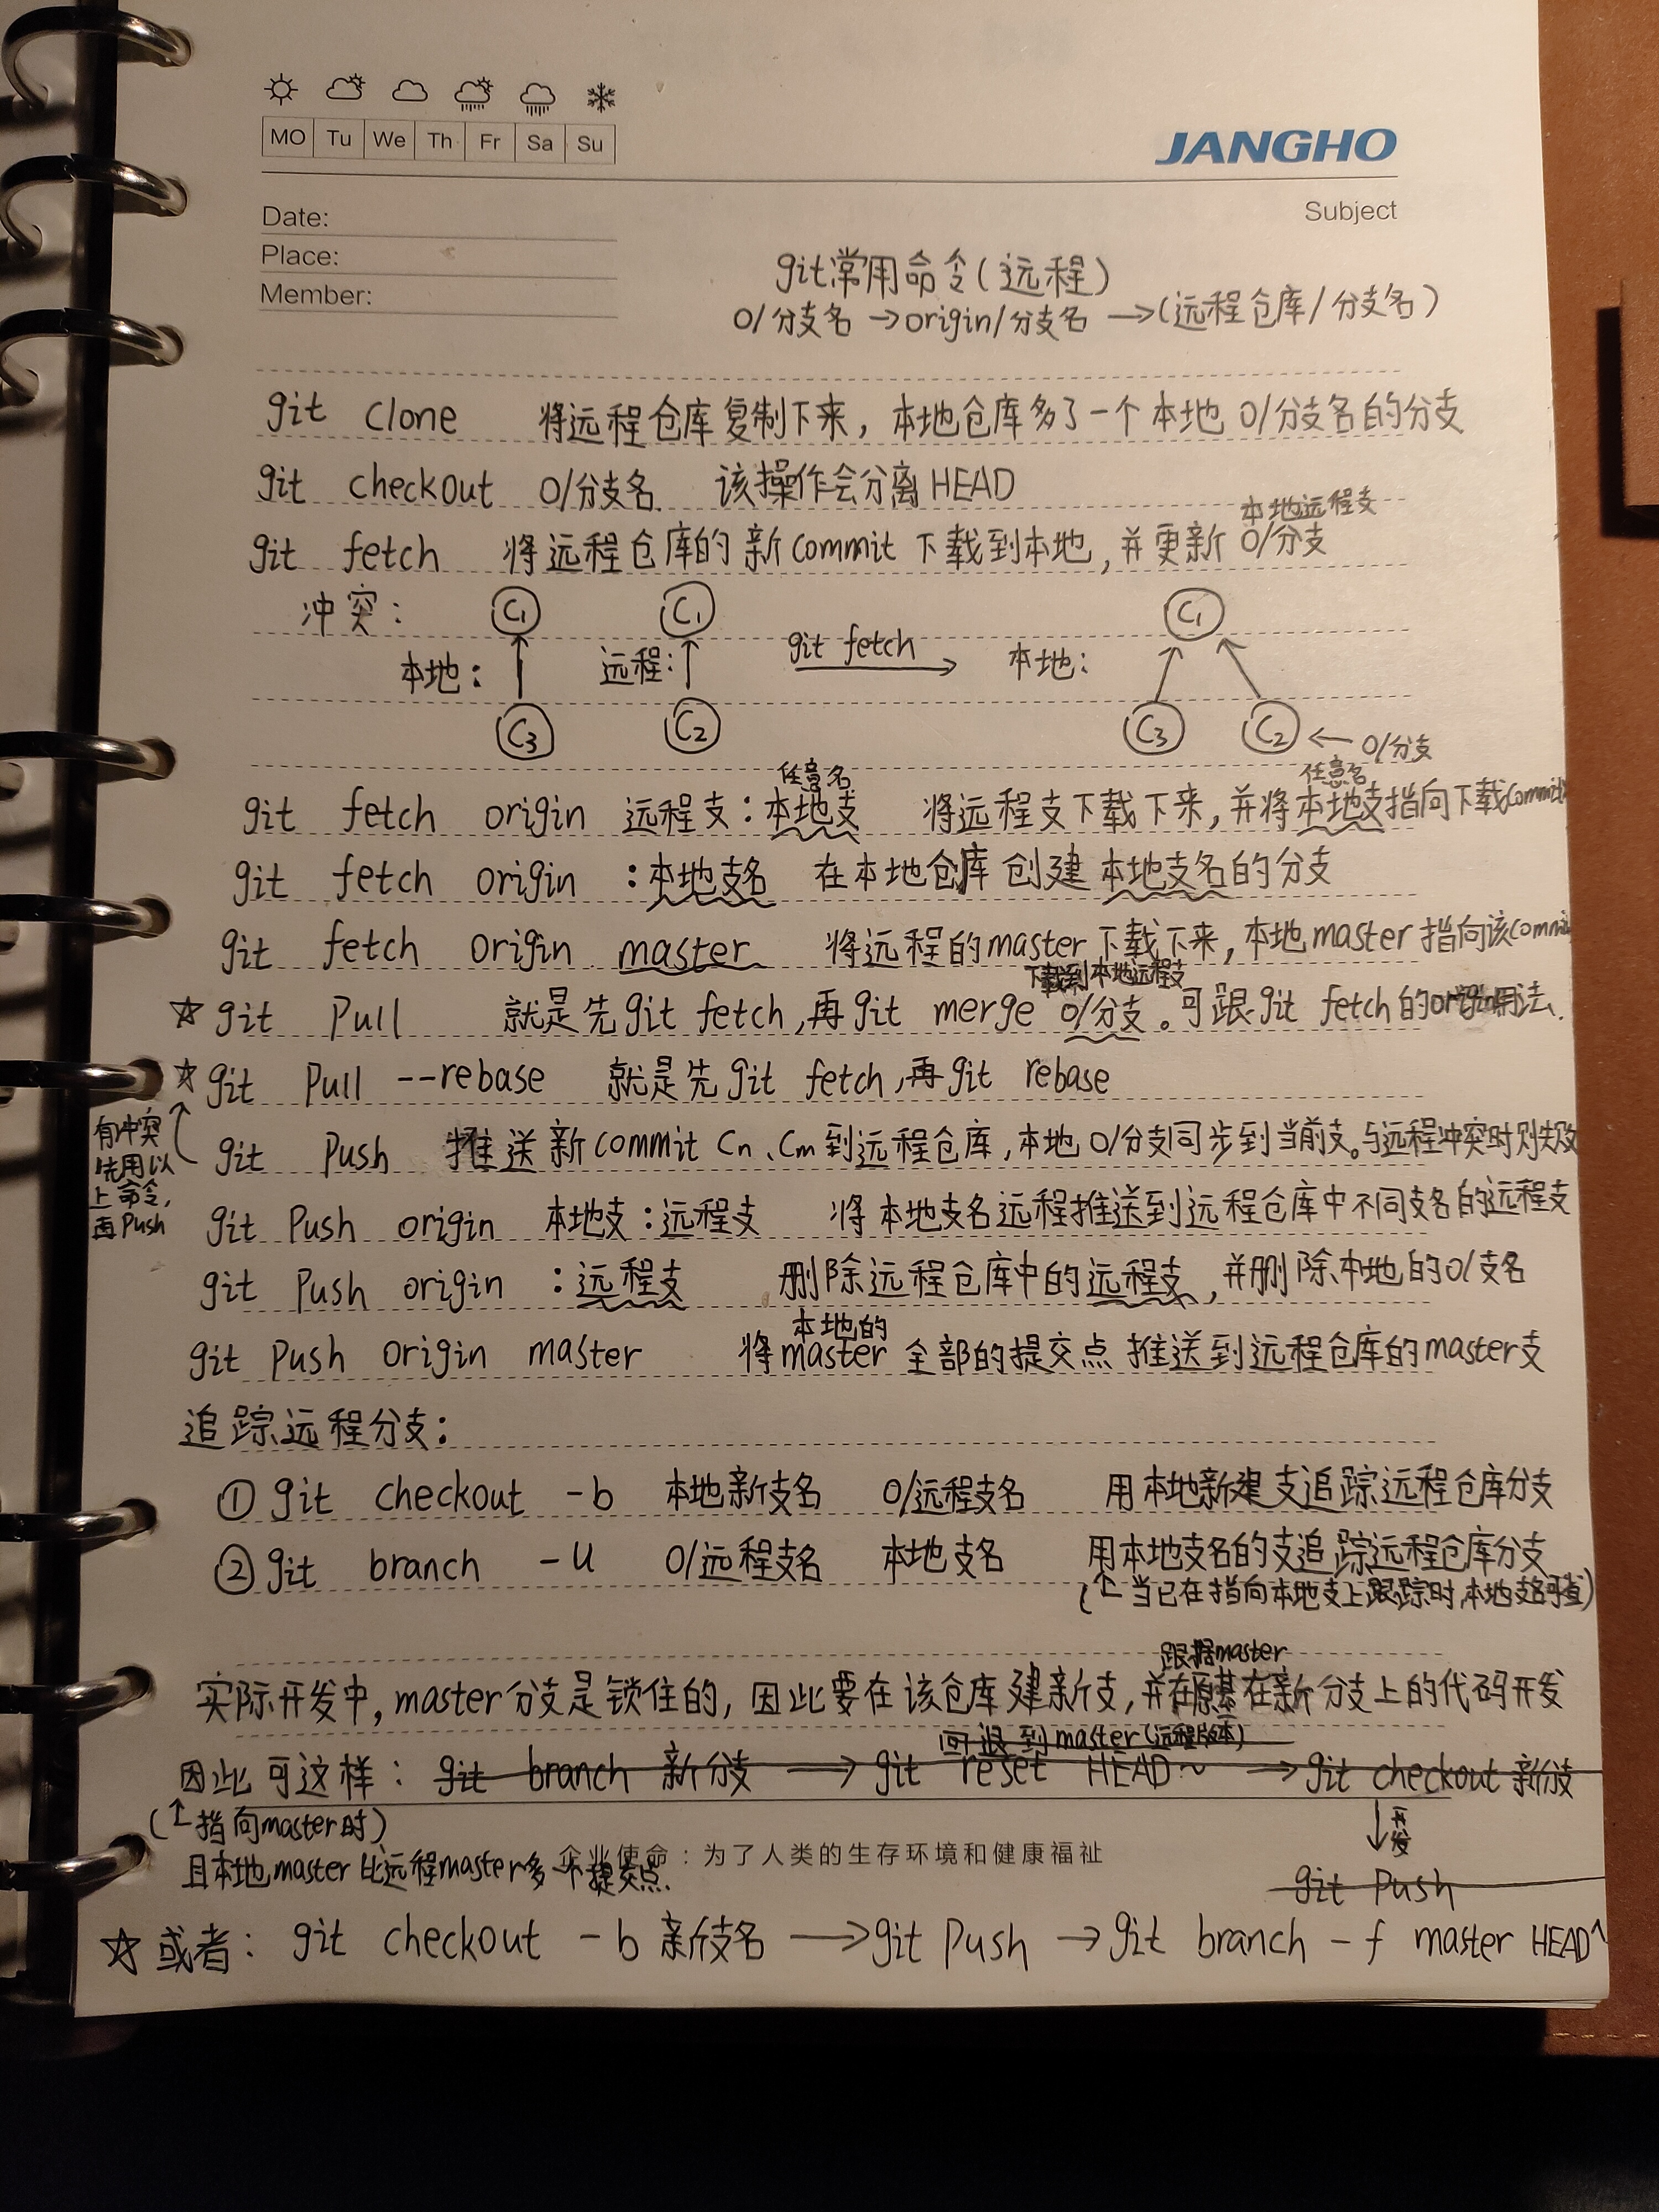 MO Tu We Th Fr Sa Su
JANGHO
Subject
Date:
Place:
Member:
git常用命令(远程)
O/分支名 →origin/分支名 →(远程仓库/分支名)
git clone 将远程仓库复制下来，本地仓库多了一个本地 O/分支名的分支
git checkout O/分支名 该操作会分离HEAD
本地远程支
git fetch 将远程仓库的新commit下载到本地，并更新 O/分支
冲突： C1 C1 C1
本地： 远程： git fetch 本地：
C3 C2 C3 C2 ← O/分支
任意名 任意名
git fetch origin 远程支：本地支 将远程支下载下来，并将本地支指向下载commit
git fetch origin ：本地支名 在本地仓库创建本地支名的分支
git fetch origin master 将远程的master下载下来，本地master指向该commit
下载到本地远程支
☆ git Pull 就是先git fetch，再git merge O/分支。可跟git fetch的origin用法.
☆ git Pull --rebase 就是先git fetch，再git rebase
有冲突
先用以
上命令，
再Push
git Push 推送新commit Cn、Cm到远程仓库，本地O/分支同步到当前支。与远程冲突时则失败
git Push origin 本地支：远程支 将本地支名远程推送到远程仓库中不同支名的远程支
git Push origin ：远程支 删除远程仓库中的远程支，并删除本地的O/支名
本地的
git Push origin master 将master全部的提交点推送到远程仓库的master支
追踪远程分支：
① git checkout -b 本地新支名 O/远程支名 用本地新建支追踪远程仓库分支
② git branch -u O/远程支名 本地支名 用本地支名的支追踪远程仓库分支
(↑当已在指向本地支上跟踪时，本地支名可省)
跟据master
实际开发中，master分支是锁住的，因此要在该仓库建新支，并在新分支上的代码开发
回退到master(远程版本)
因此可这样： git branch 新分支 → git reset HEAD~ → git checkout 新分支
(↑指向master时)
且本地master比远程master多一个提交点.
企业使命：为了人类的生存环境和健康福祉
↓开发
git Push
☆ 或者： git checkout -b 新支名 → git Push → git branch -f master HEAD^